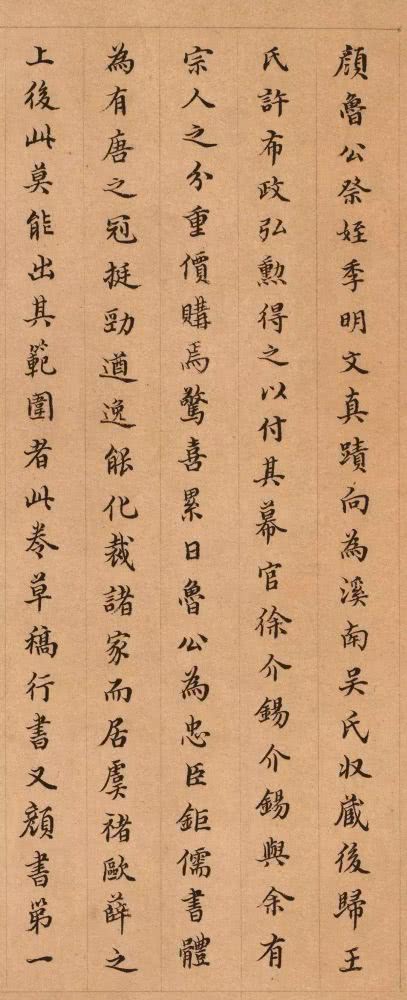 顔魯公祭姪季明文真蹟向為溪南吳氏收藏後歸王
氏許布政弘勲得之以付其幕官徐介錫介錫與余有
宗人之分重價購焉驚喜累日魯公為忠臣鉅儒書體
為有唐之冠挺勁遒逸能化裁諸家而居虞褚歐薛之
上後此莫能出其範圍者此卷草稿行書又顔書第一